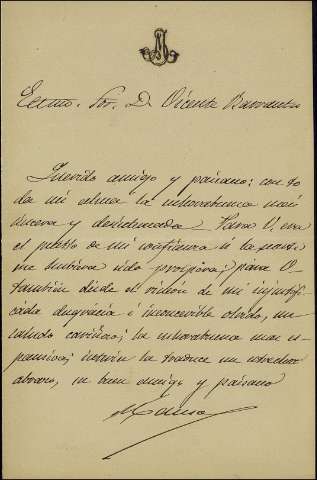 Excmo. Sor. D. Vicente Barrantes
Querido amigo y paisano: con to
da mi alma la enhorabuena mas
sincera y desinteresada. Para V. era
el puesto de mi confianza si la suerte
me hubiera sido propicia; para V.
tambien desde el rincón de mi injustifi
cada desgracia é inconcebible olvido, un
saludo cariñoso; la enhorabuena mas es
pansiva; interin la traduce un estrecho
abrazo, su buen amigo y paisano